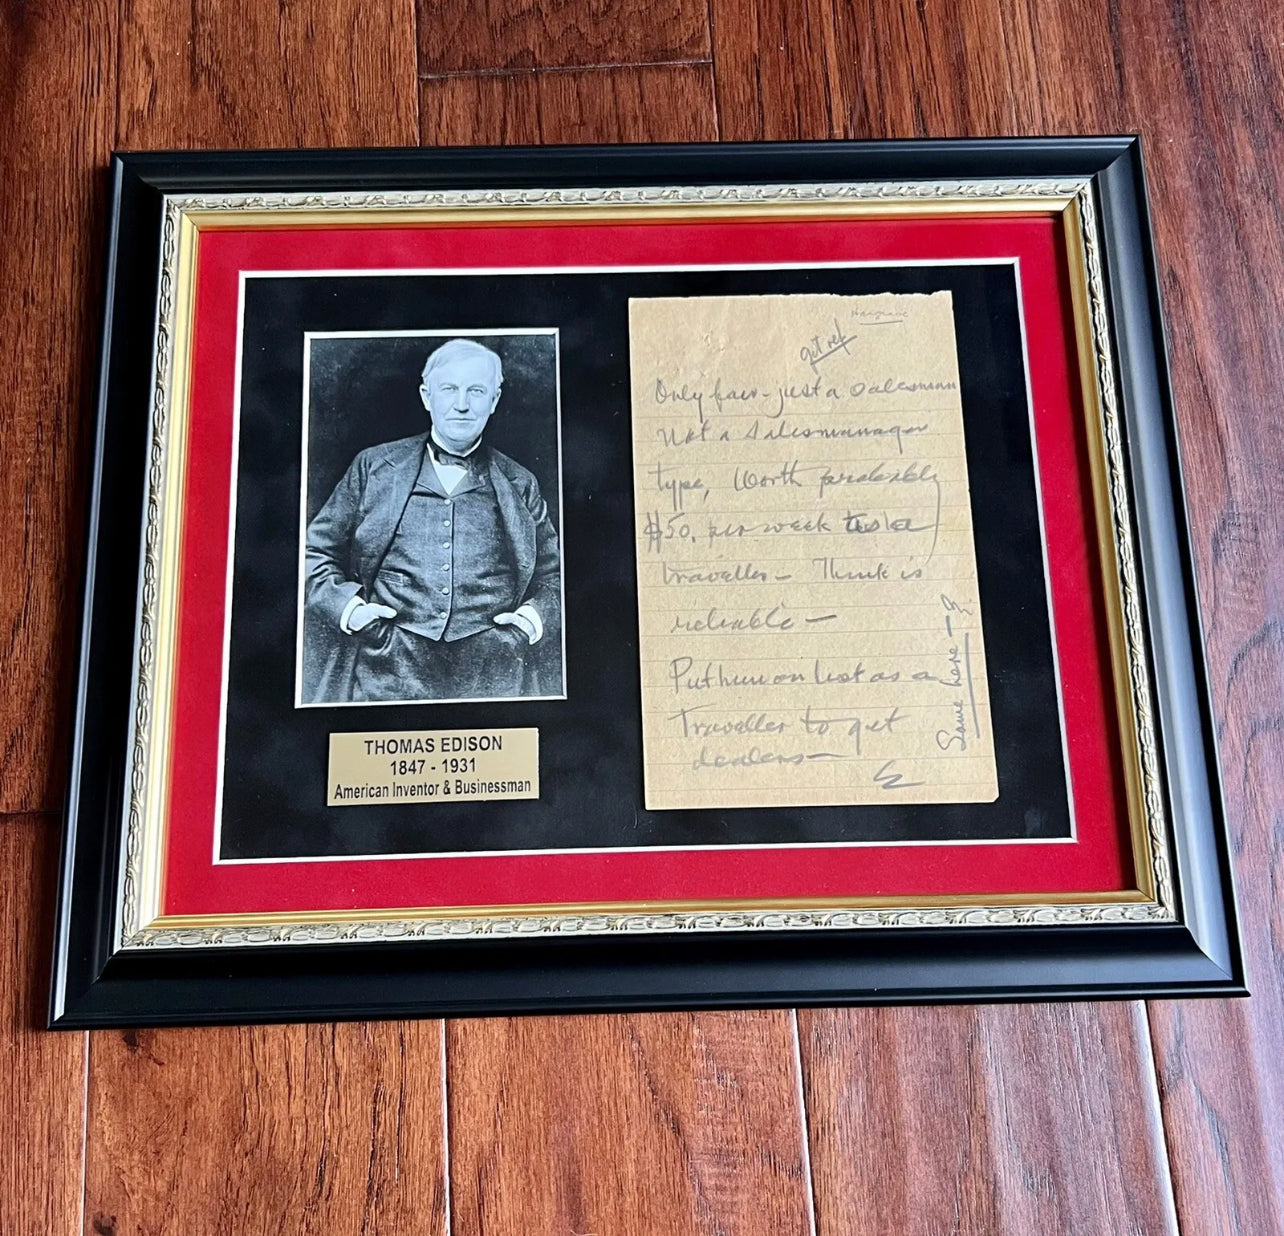 THOMAS EDISON
1847 - 1931
American Inventor & Businessman
get ref
Only fair - just a salesman
Not a Salesmanager
type, Worth probably
$50. per week as a
traveller - Think is
reliable -
Put him on list as a
Traveller to get
dealers -
E
Same here - E.